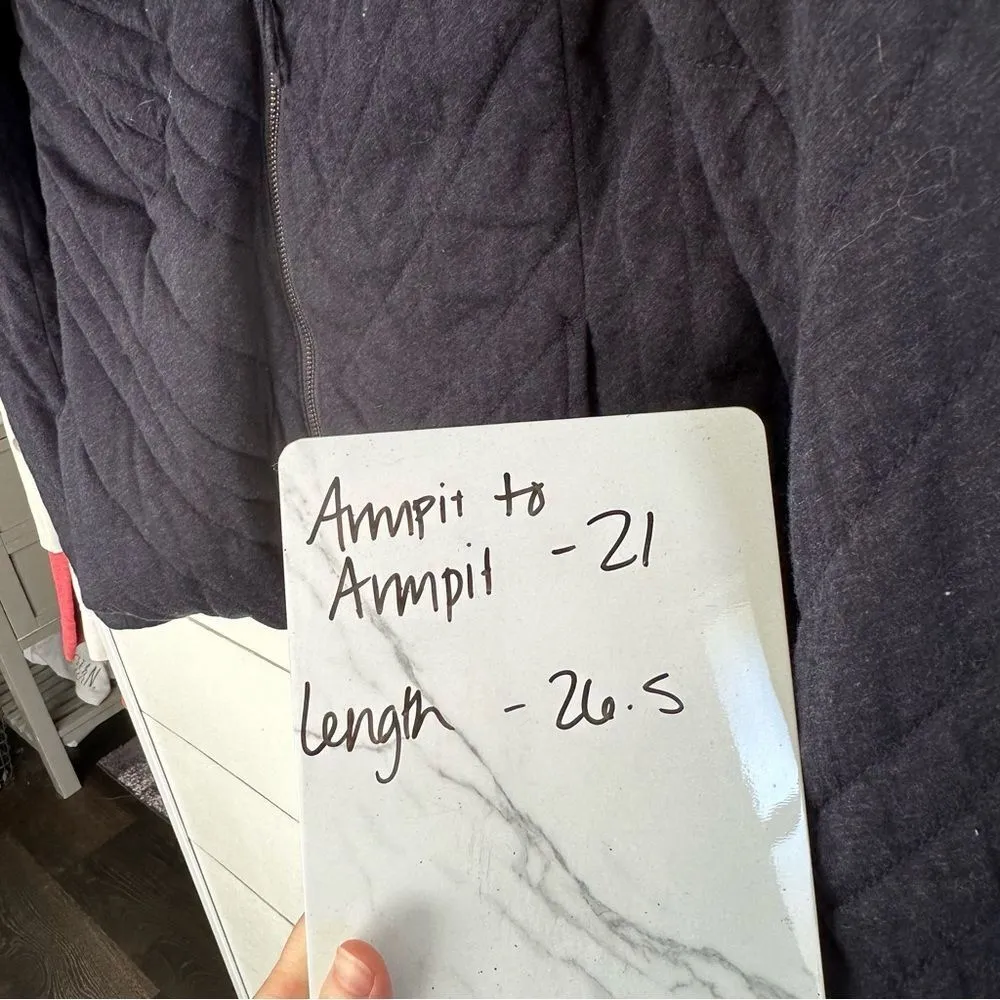 Armpit to
Armpit - 21
Length - 26.5